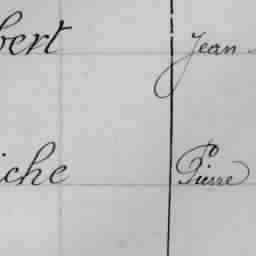 bert Jean
iche Pierre